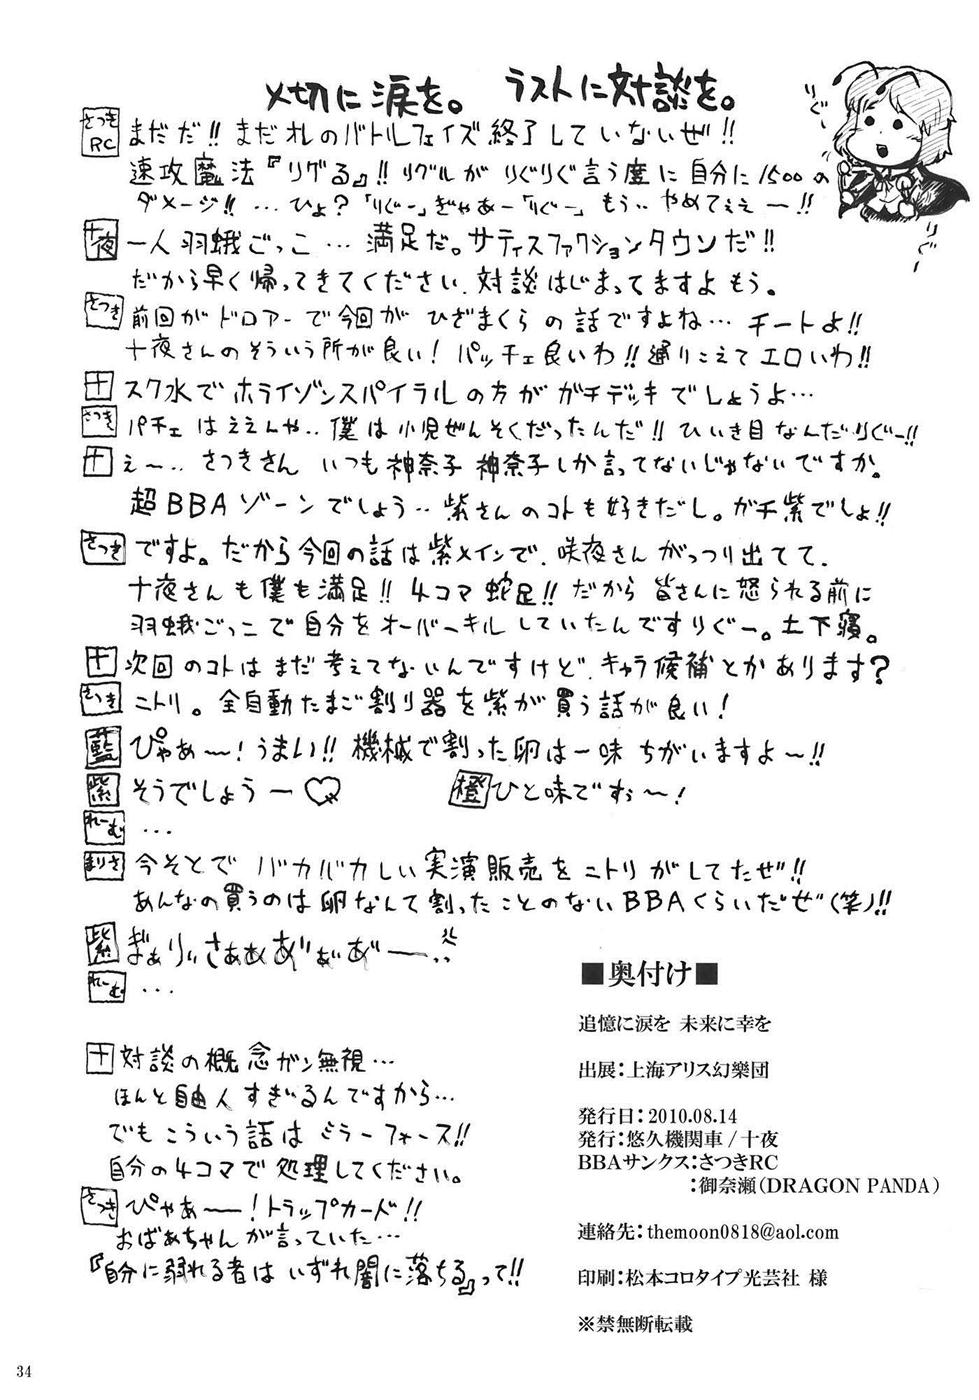 〆切に涙を。 ラストに対談を。
りぐ〜
りぐ〜
さつきRC まだだ!! まだオレのバトルフェイズ終了していないぜ!!
速攻魔法『リグる』!! リグルがりぐりぐ言う度に自分に1500の
ダメージ!! …ひょ?「りぐー」ぎゃあー「りぐー」もう‥やめてぇぇー!!
十夜 一人羽蛾ごっこ…満足だ。サティスファクションタウンだ!!
だから早く帰ってきてください.対談はじまってますよもう。
さつき 前回がドロアーで今回がひざまくらの話ですよね…チートよ!!
十夜さんのそういう所が良い! パッチェ良いわ!!通りこえてエロいわ!!
十 スク水でホライゾンスパイラルの方がガチデッキでしょうよ…
さつき パチェはええんや‥僕は小児ぜんそくだったんだ!! ひいき目なんだりぐー!!
十 えー‥さつきさん いつも神奈子神奈子しか言ってないじゃないですか。
超BBAゾーンでしょう‥紫さんのコトも好きだし。ガチ紫でしょ!!
さつき ですよ。だから今回の話は紫メインで.咲夜さんがっつり出てて.
十夜さんも僕も満足!! 4コマ蛇足!! だから皆さんに怒られる前に
羽蛾ごっこで自分をオーバーキルしていたんですりぐー。土下寝。
十 次回のコトはまだ考えてないんですけど.キャラ候補とかあります?
さつき ニトリ。全自動たまご割り器を紫が買う話が良い!
藍 ぴゃあ〜!うまい!! 機械で割った卵は一味ちがいますよ〜!!
紫 そうでしょうー♡ 橙 ひと味ですぉ〜!
れーむ …
まりさ 今そとでバカバカしい実演販売をニトリがしてたぜ!!
あんなの買うのは卵なんて割ったことのないBBAくらいだぜ(笑)!!
紫 ぎぁりぃさぁぁあ゛ぁあ゛ー‥
れーむ …
十 対談の概念ガン無視…
ほんと自由人すぎるんですから…
でもこういう話はミラーフォース!!
自分の4コマで処理してください。
さつき ぴゃあ〜!トラップカード!!
おばあちゃんが言っていた…
『自分に溺れる者はいずれ闇に落ちる』って!!
■奥付け■
追憶に涙を 未来に幸を
出展:上海アリス幻樂団
発行日:2010.08.14
発行:悠久機関車/十夜
BBAサンクス:さつきRC
:御奈瀬(DRAGON PANDA)
連絡先:themoon0818@aol.com
印刷:松本コロタイプ光芸社 様
※禁無断転載
34